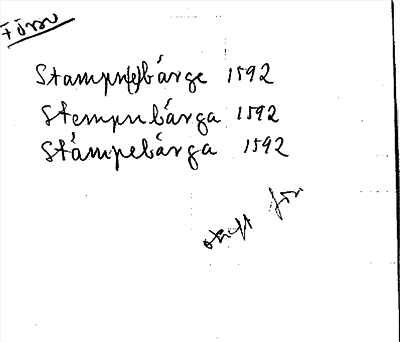 Försv
Stampn(e)bärge 1592
Stempnbärga 1592
Stämpebärga 1592
för